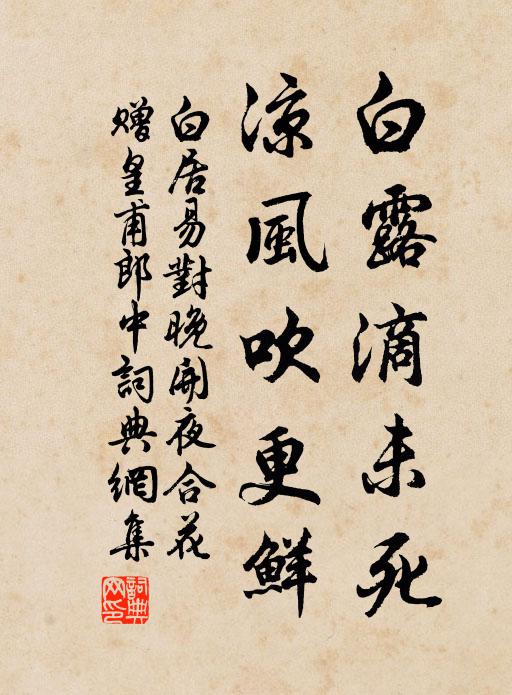 白露滴未死
涼風吹更鮮
白居易對晚開夜合花
贈皇甫郎中詞典網集
詞典網印